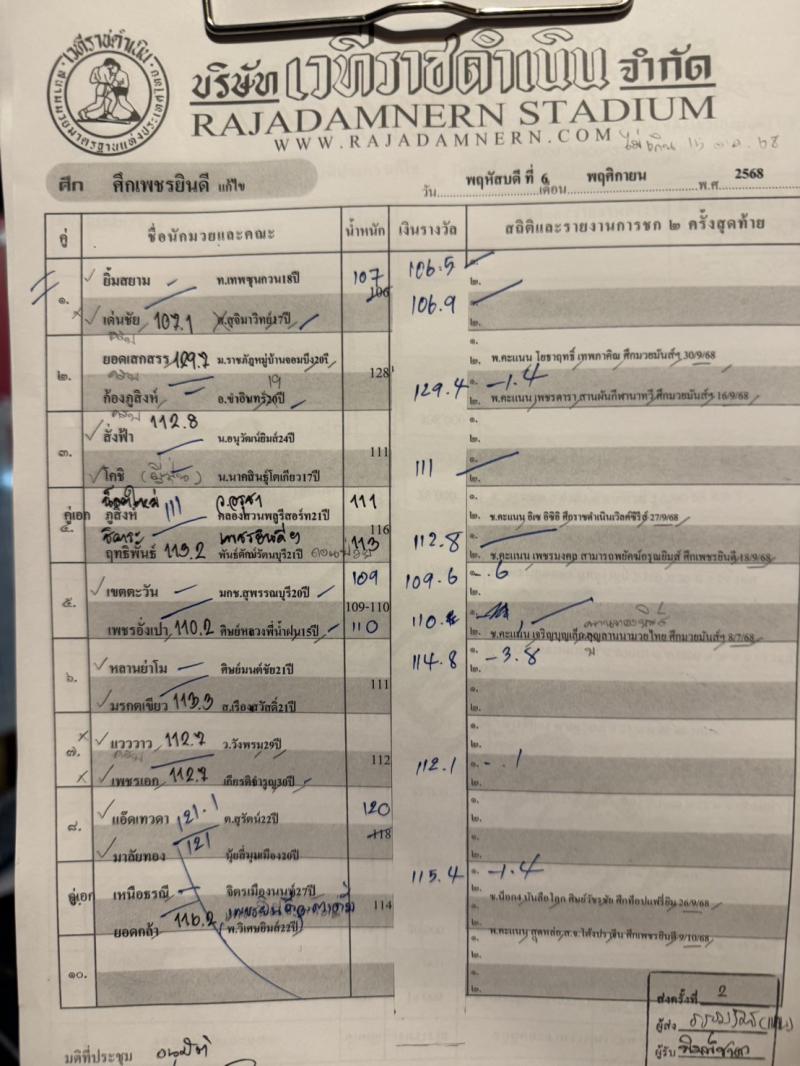 เวทีราชดำเนิน
บริษัท เวทีราชดำเนิน จำกัด
RAJADAMNERN STADIUM
WWW.RAJADAMNERN.COM
ศึก ศึกเพชรยินดี แก้ไข
วัน พฤหัสบดี ที่ 6 เดือน พฤศิกายน พ.ศ 2568
คู่ ชื่อนักมวยและคณะ น้ำหนัก เงินรางวัล สถิติและรายงานการชก ๒ ครั้งสุดท้าย
๑. ยิ้มสยาม ท.เทพชุนกวน18ปี 107 106 106.5 ๑. ๒.
เด่นชัย 107.1 ศ.สุจิมาวิทย์17ปี 106.9 ๑. ๒.
๒. ยอดเสกสรร 129.7 ม.ราชภัฎหมู่บ้านจอมบึง20ปี 128 ๑.
๒. พ.คะแนน โยธาฤทธิ์ เทพภาคิณ ศึกมวยมันส์ฯ 30/9/68
ก้องภูสิงห์ อ.ขำอินทร์20ปี 19 129.4 ๑. -1.4
๒. พ.คะแนน เพชรดารา สานฝันกีฬานาทวี ศึกมวยมันส์ฯ 16/9/68
๓. สั่งฟ้า 112.8 น.อนุวัฒน์ยิมส์24ปี 111 ๑. ๒.
โคชิ (ญี่ปุ่น) น.นาคสินธุ์โตเกียว17ปี 111 ๑. ๒.
คู่เอก ๔. ภูสิงห์ 111 คลองสวนพลูรีสอร์ท21ปี 111 116 ๑.
๒. ช.คะแนน ศึกราชดำเนินเวิลด์ซีรีส์ 27/9/68
ฤทธิพันธ์ 113.2 พันธ์ศักม์รัตนบุรี21ปี 113 112.8 ๑.
๒. ช.คะแนน เพชรมงคล สามารถพยัคฆ์อรุณยิมส์ ศึกเพชรยินดี 18/9/68
๕. เขตตะวัน มกช.สุพรรณบุรี20ปี 109 109-110 109.6 ๑. .6
๒.
เพชรอั่งเปา 110.2 ศิษย์หลวงพี่น้ำฝน15ปี 110 ๑.
๒. ช.คะแนน เจริญบุญเลิศ ศึกมวยมันส์ฯ 8/7/68
๖. หลานย่าโม ศิษย์มนต์ชัย21ปี 111 114.8 ๑. -3.8 ๒.
มรกตเขียว 113.3 ส.เรืองสวัสดิ์21ปี ๑. ๒.
๗. แวววาว 112.7 ว.วังพรม29ปี 112 ๑. ๒.
เพชรเอก 112.7 เกียรติจำรูญ30ปี 112.1 ๑. -.1 ๒.
๘. แอ๊ดเทวดา 121.1 ต.สุรัตน์22ปี 120 118 ๑. ๒.
มาลัยทอง 121 นุ้ยสี่มุมเมือง20ปี ๑. ๒.
คู่เอก เหนือธรณี จิตรเมืองนนท์27ปี 114 115.4 ๑. -1.4
๒. ศึกท็อปแฟรี่ยิม 26/9/68
ยอดกล้า 116.2 (พ.วิเศษยิมส์22ปี) ๑.
๒. พ.คะแนน ศึกเพชรยินดี 9/10/68
๑๐. ๑. ๒.
ส่งครั้งที่ 2
ผู้ส่ง
ผู้รับ
มติที่ประชุม อนุมัติ